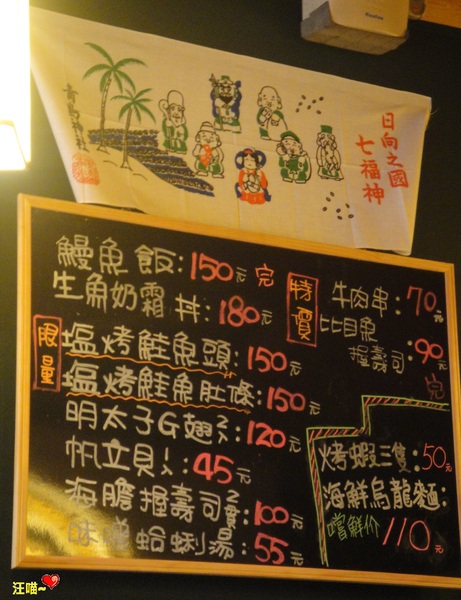 日向之國
七福神
青島神社
鰻魚飯:150元 完
生魚奶霜丼:180元
限量
塩烤鮭魚頭:150元
塩烤鮭魚肚條:150元
明太子G翅2入:120元
帆立貝1入:45元
海膽握壽司2貫:100元
味噌蛤蜊湯:55元
特賣
牛肉串:70元
比目魚
握壽司:90元
完
烤蝦三隻:50元
海鮮烏龍麵:
嚐鮮价110元
汪喵~